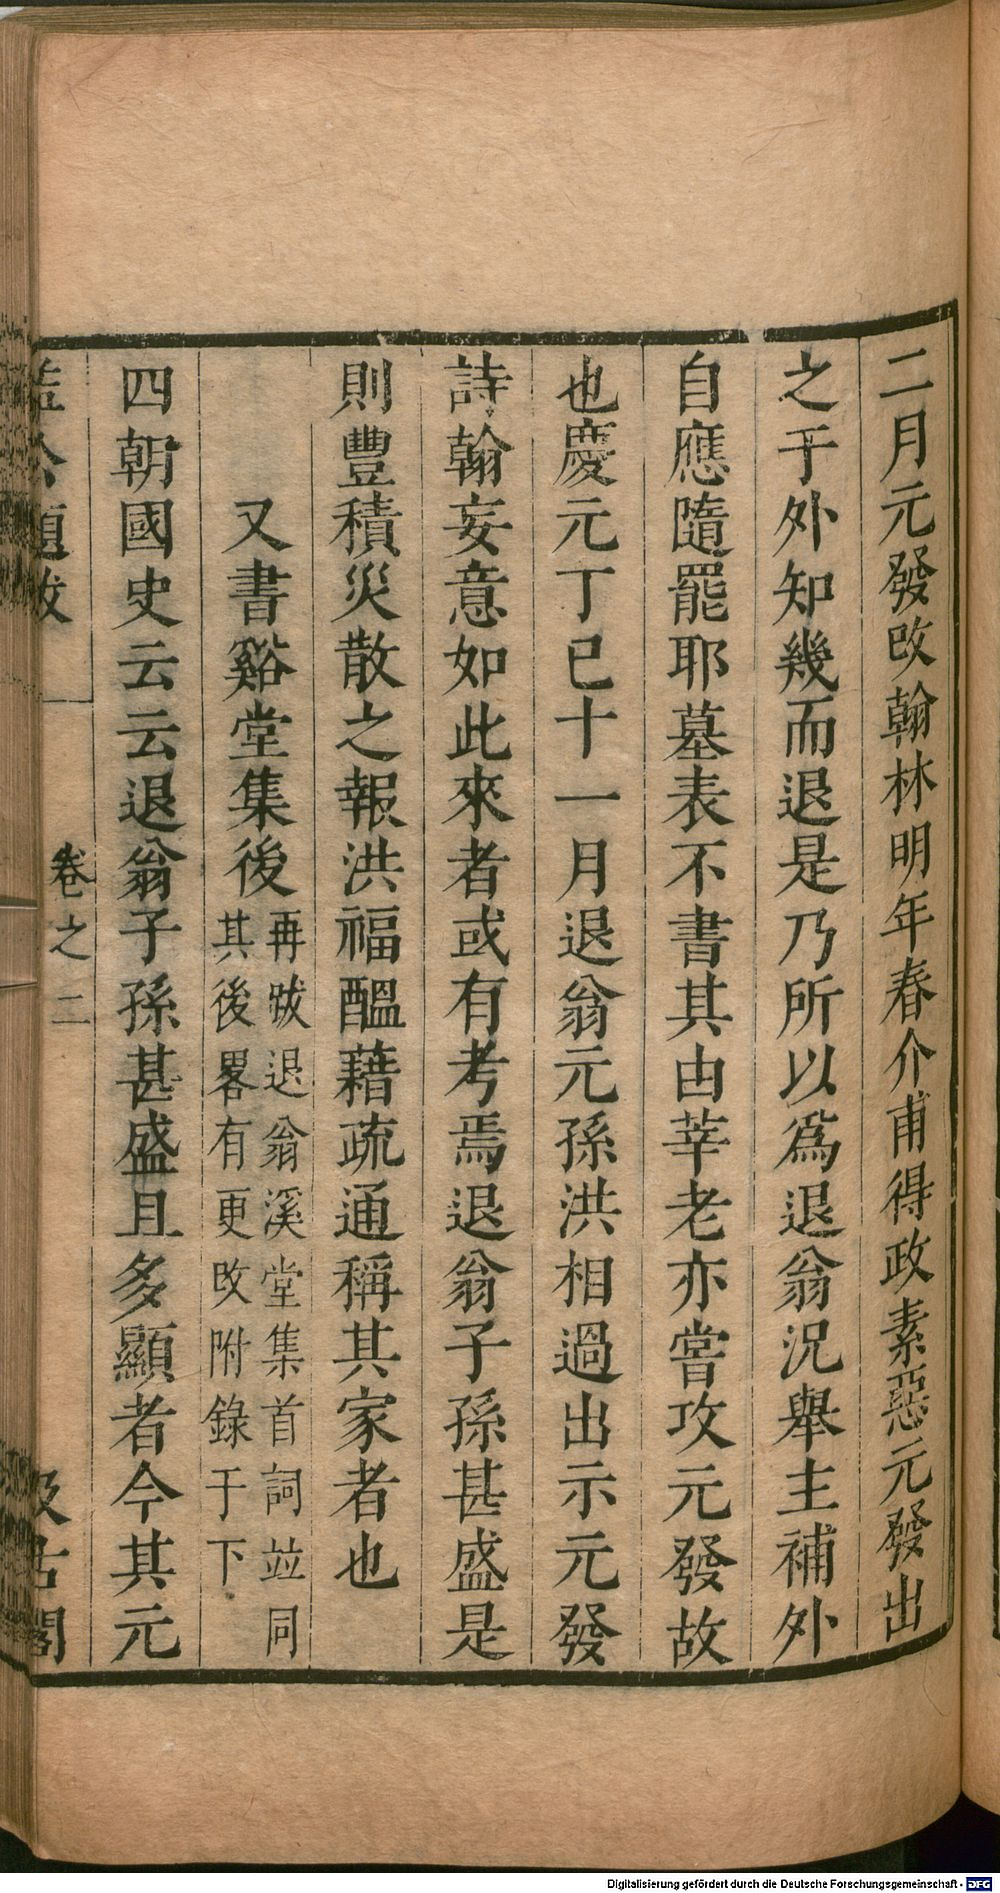 二月元發改翰林明年春介甫得政素惡元發出
之于外知幾而退是乃所以爲退翁況舉主補外
自應隨罷耶墓表不書其由莘老亦嘗攻元發故
也慶元丁巳十一月退翁元孫洪相過出示元發
詩翰妄意如此來者或有考焉退翁子孫甚盛是
則豐積災散之報洪福醞藉疏通稱其家者也
又書谿堂集後
再跋退翁溪堂集首詞並同
其後畧有更改附錄于下
四朝國史云云退翁子孫甚盛且多顯者今其元
益公題跋
卷之二
汲古閣
Digitalisierung gefördert durch die Deutsche Forschungsgemeinschaft - DFG